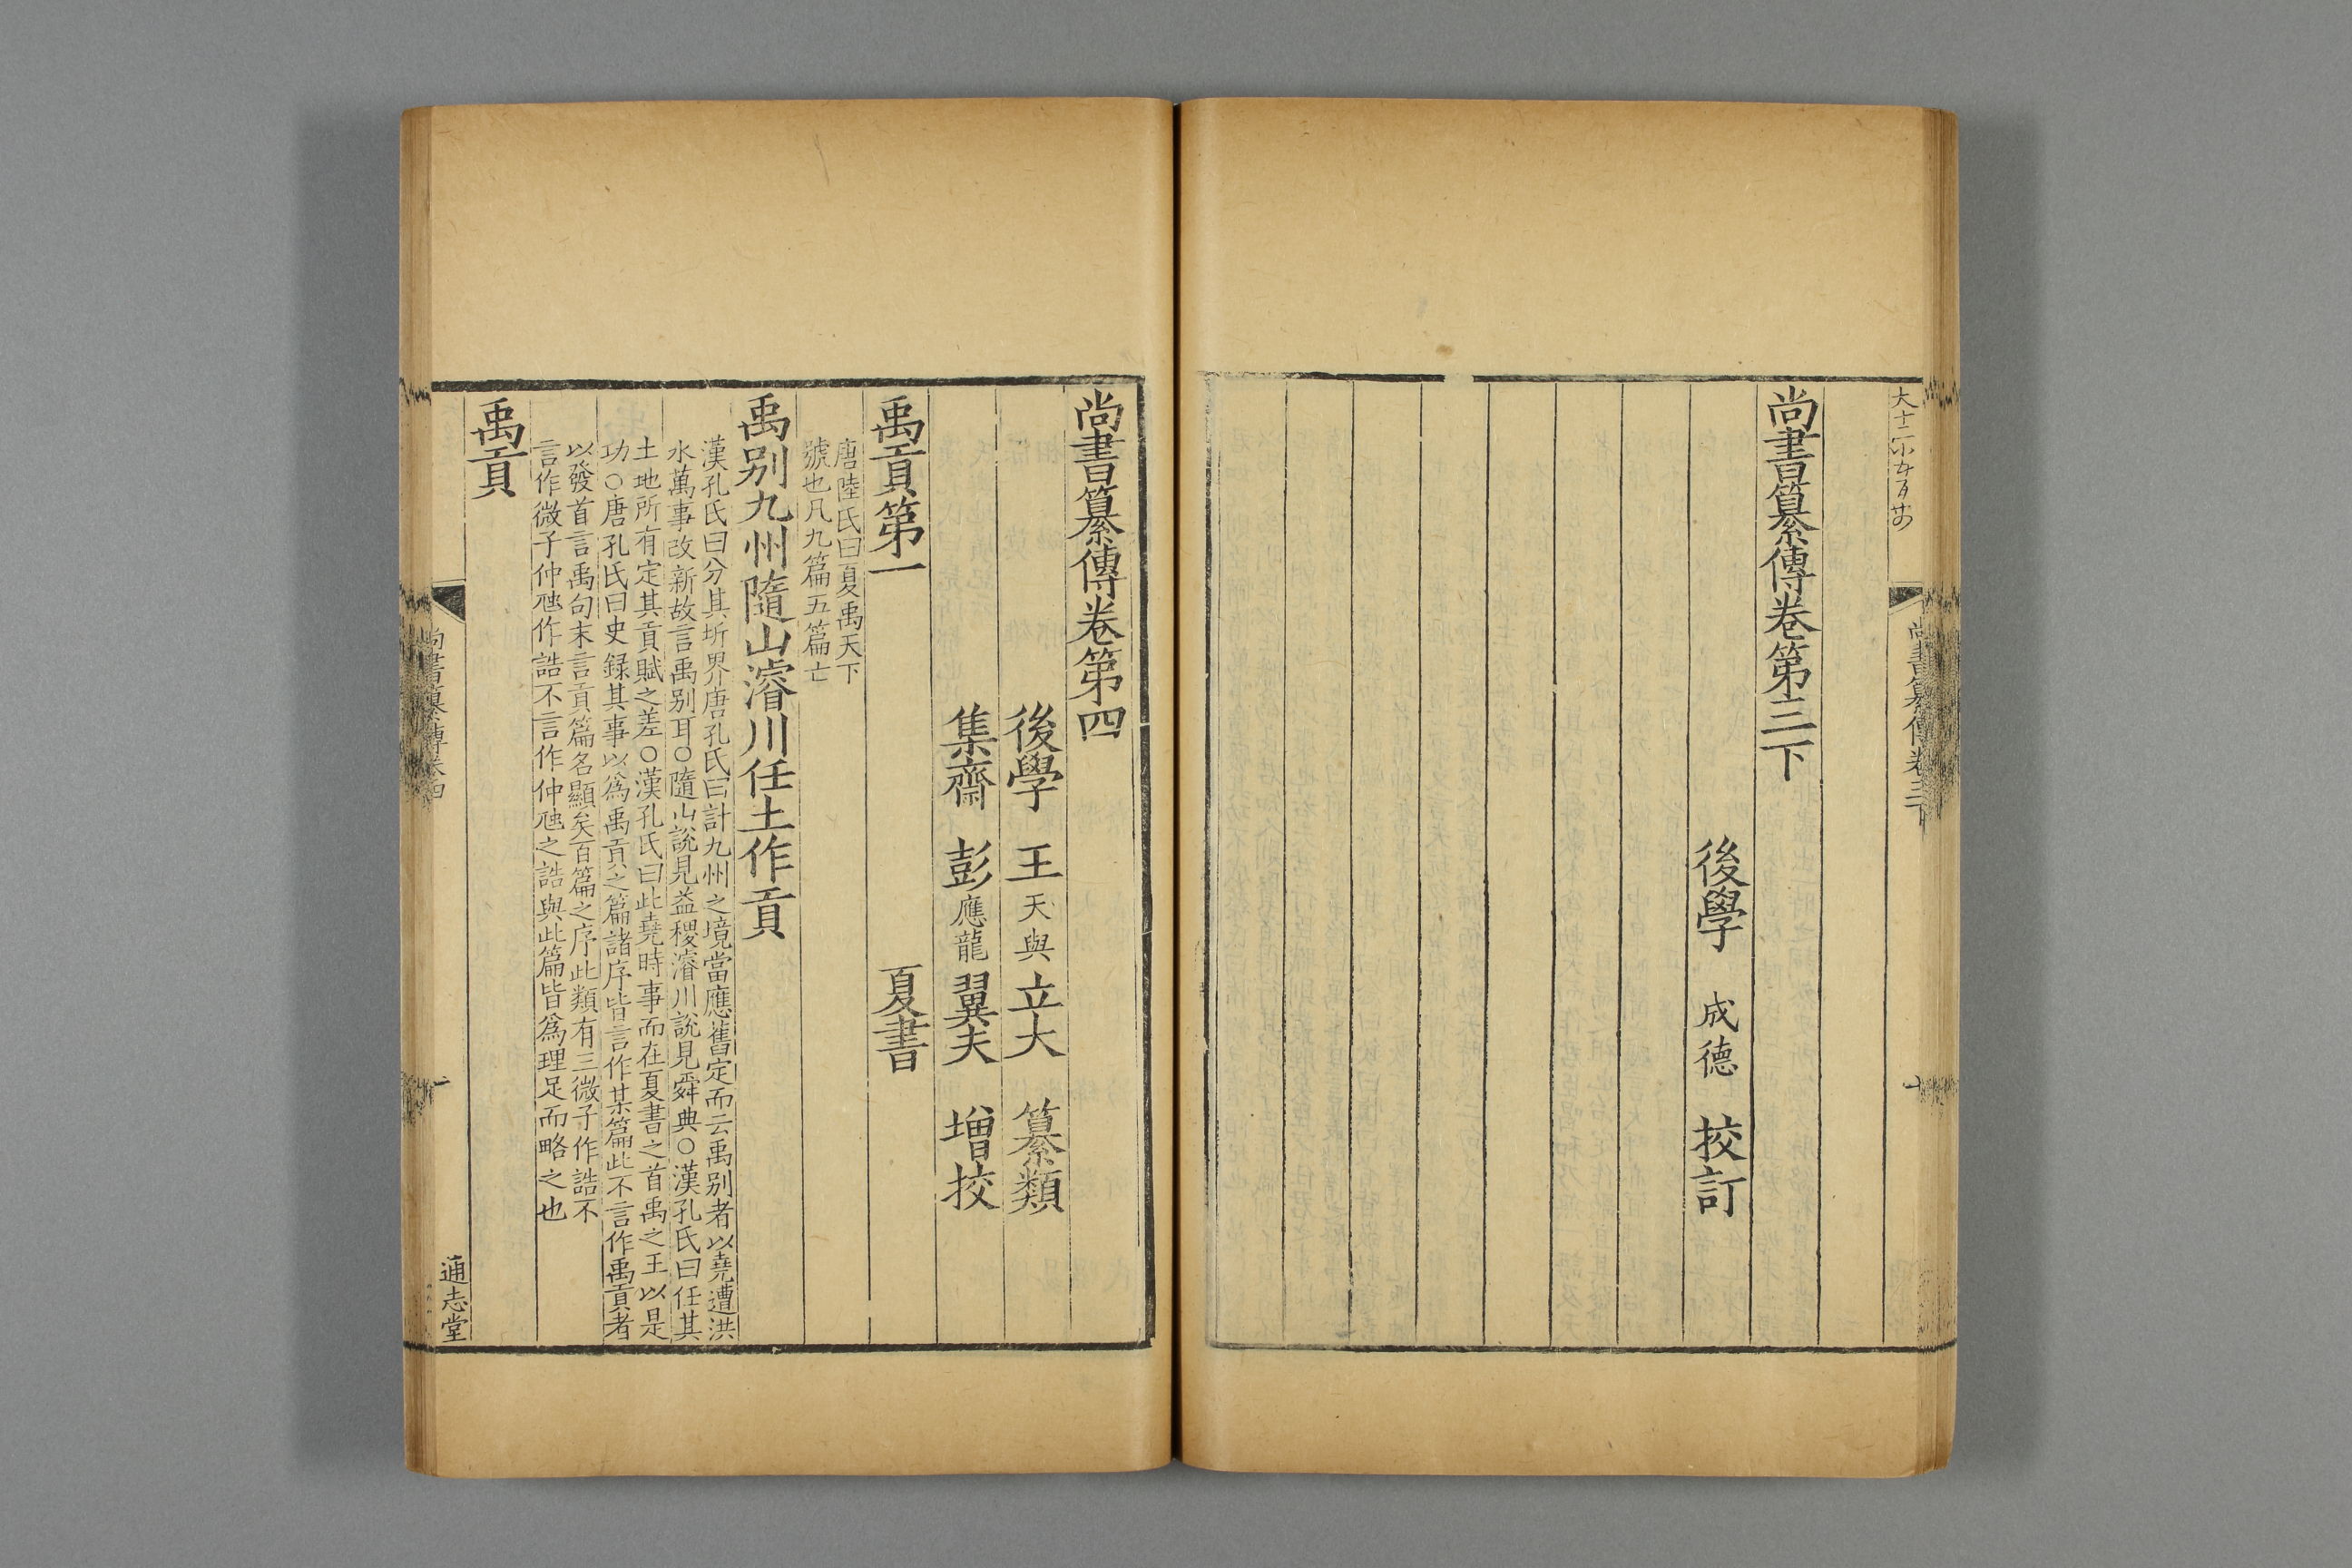 尚書纂傳卷三下
尚書纂傳卷第三下
後學 成德 挍訂
尚書纂傳卷第四
後學 王天與立大 纂類
集齋 彭應龍翼夫 增挍
禹貢第一 夏書
唐陸氏曰夏禹天下
號也凡九篇五篇亡
禹别九州隨山濬川任土作貢
漢孔氏曰分其圻界唐孔氏曰計九州之境當應舊定而云禹别者以堯遭洪
水萬事改新故言禹别耳○隨山說見益稷濬川說見舜典○漢孔氏曰任其
土地所有定其貢賦之差○漢孔氏曰此堯時事而在夏書之首禹之王以是
功○唐孔氏曰史録其事以爲禹貢之篇諸序皆言作某篇此不言作禹貢者
以發首言禹句末言貢篇名顯矣百篇之序此類有三微子作誥不
言作微子仲虺作誥不言作仲虺之誥與此篇皆爲理足而略之也
禹貢
尚書纂傳卷四
一
通志堂